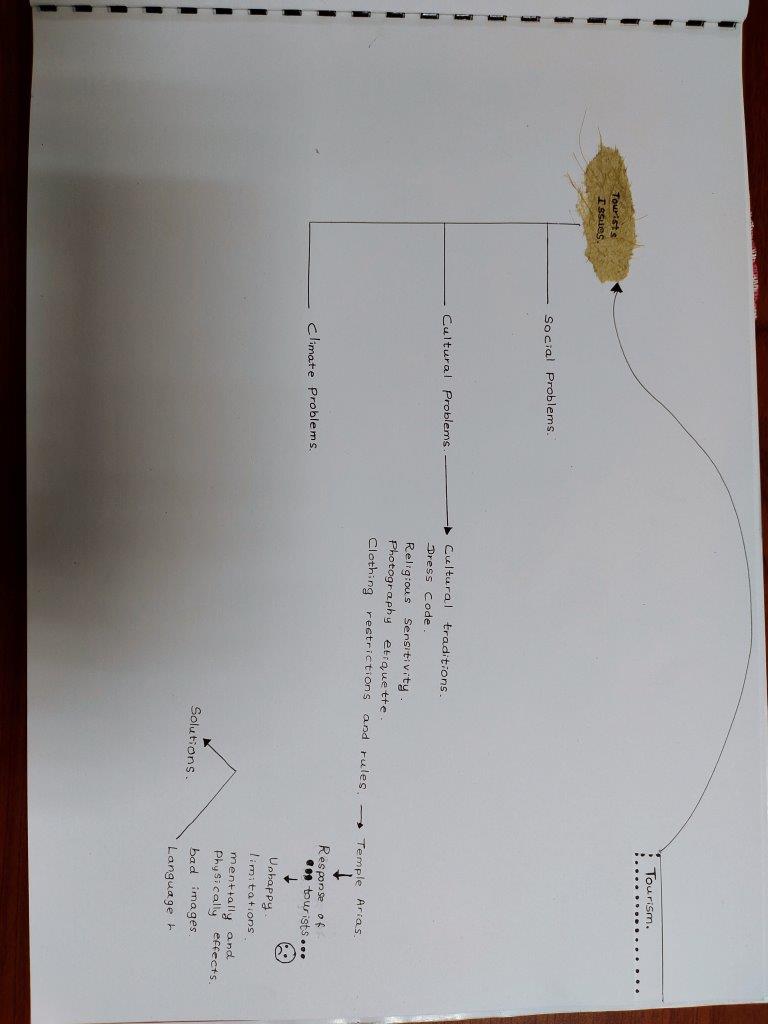 Tourism.
Tourists
Issues.
Social Problems.
Cultural Problems.
Cultural traditions.
Dress Code.
Religious Sensitivity.
Photography etiquette.
Clothing restrictions and rules.
Temple Arias.
Response of
tourists
Unhappy.
limitations.
mentally and
Physically effects.
bad images.
Language
Solutions.
Climate Problems.